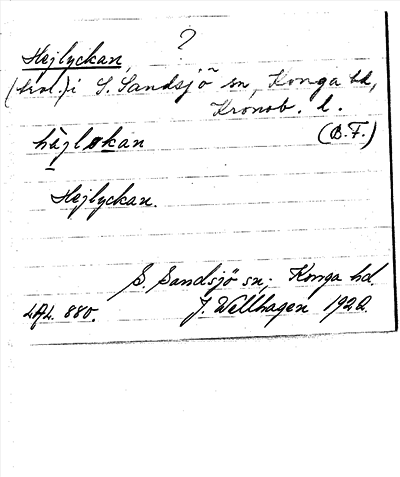 ?
Hejlyckan,
i S. Sandsjö sn, Konga hd,
Kronob. l.
(B.F.)
häjlokan
Hejlyckan.
S. Sandsjö sn, Konga hd.
880. J. Wellhagen 192